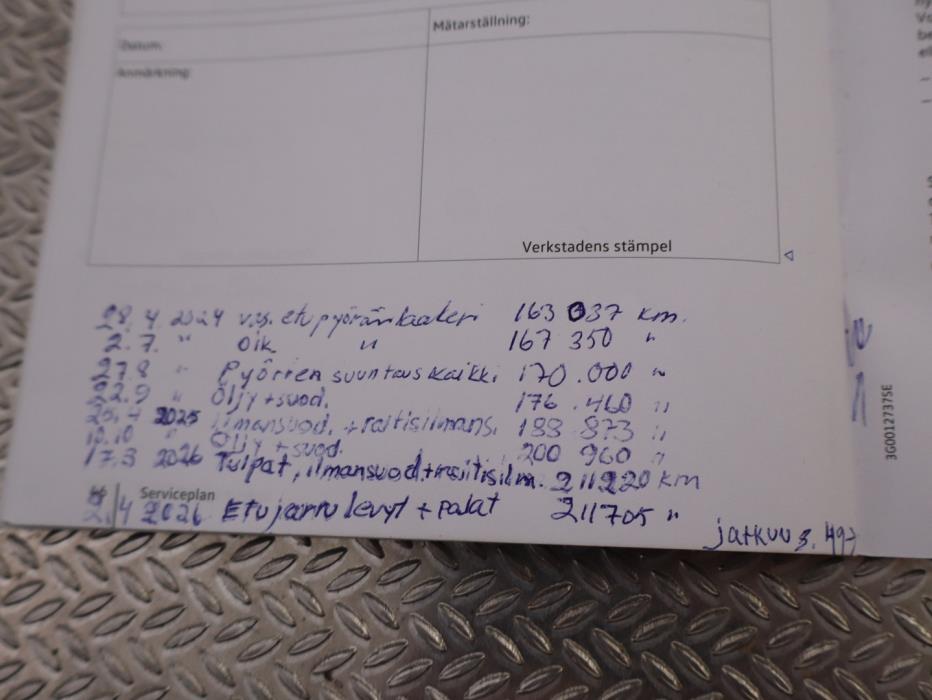 Mätarställning:
Datum:
Anmärkning:
Verkstadens stämpel
28.4. 2024 vas. etupyöränlaakeri 163 037 km.
2.7. " oik " 167 350 "
27.8 " Pyörien suuntaus kaikki 170.000 "
22.9 " Öljy + suod. 176.460 "
25.4 2025 ilmansuod. + raitisilmans. 188 873 "
10.10 " Öljy + suod. 200 960 "
17.3 2026 Tulpat, ilmansuod + raitisilm. 211220 km
Serviceplan
2.4 2026 Etujarrulevyt + palat 211705 "
jatkuu s.
3G0012737SE